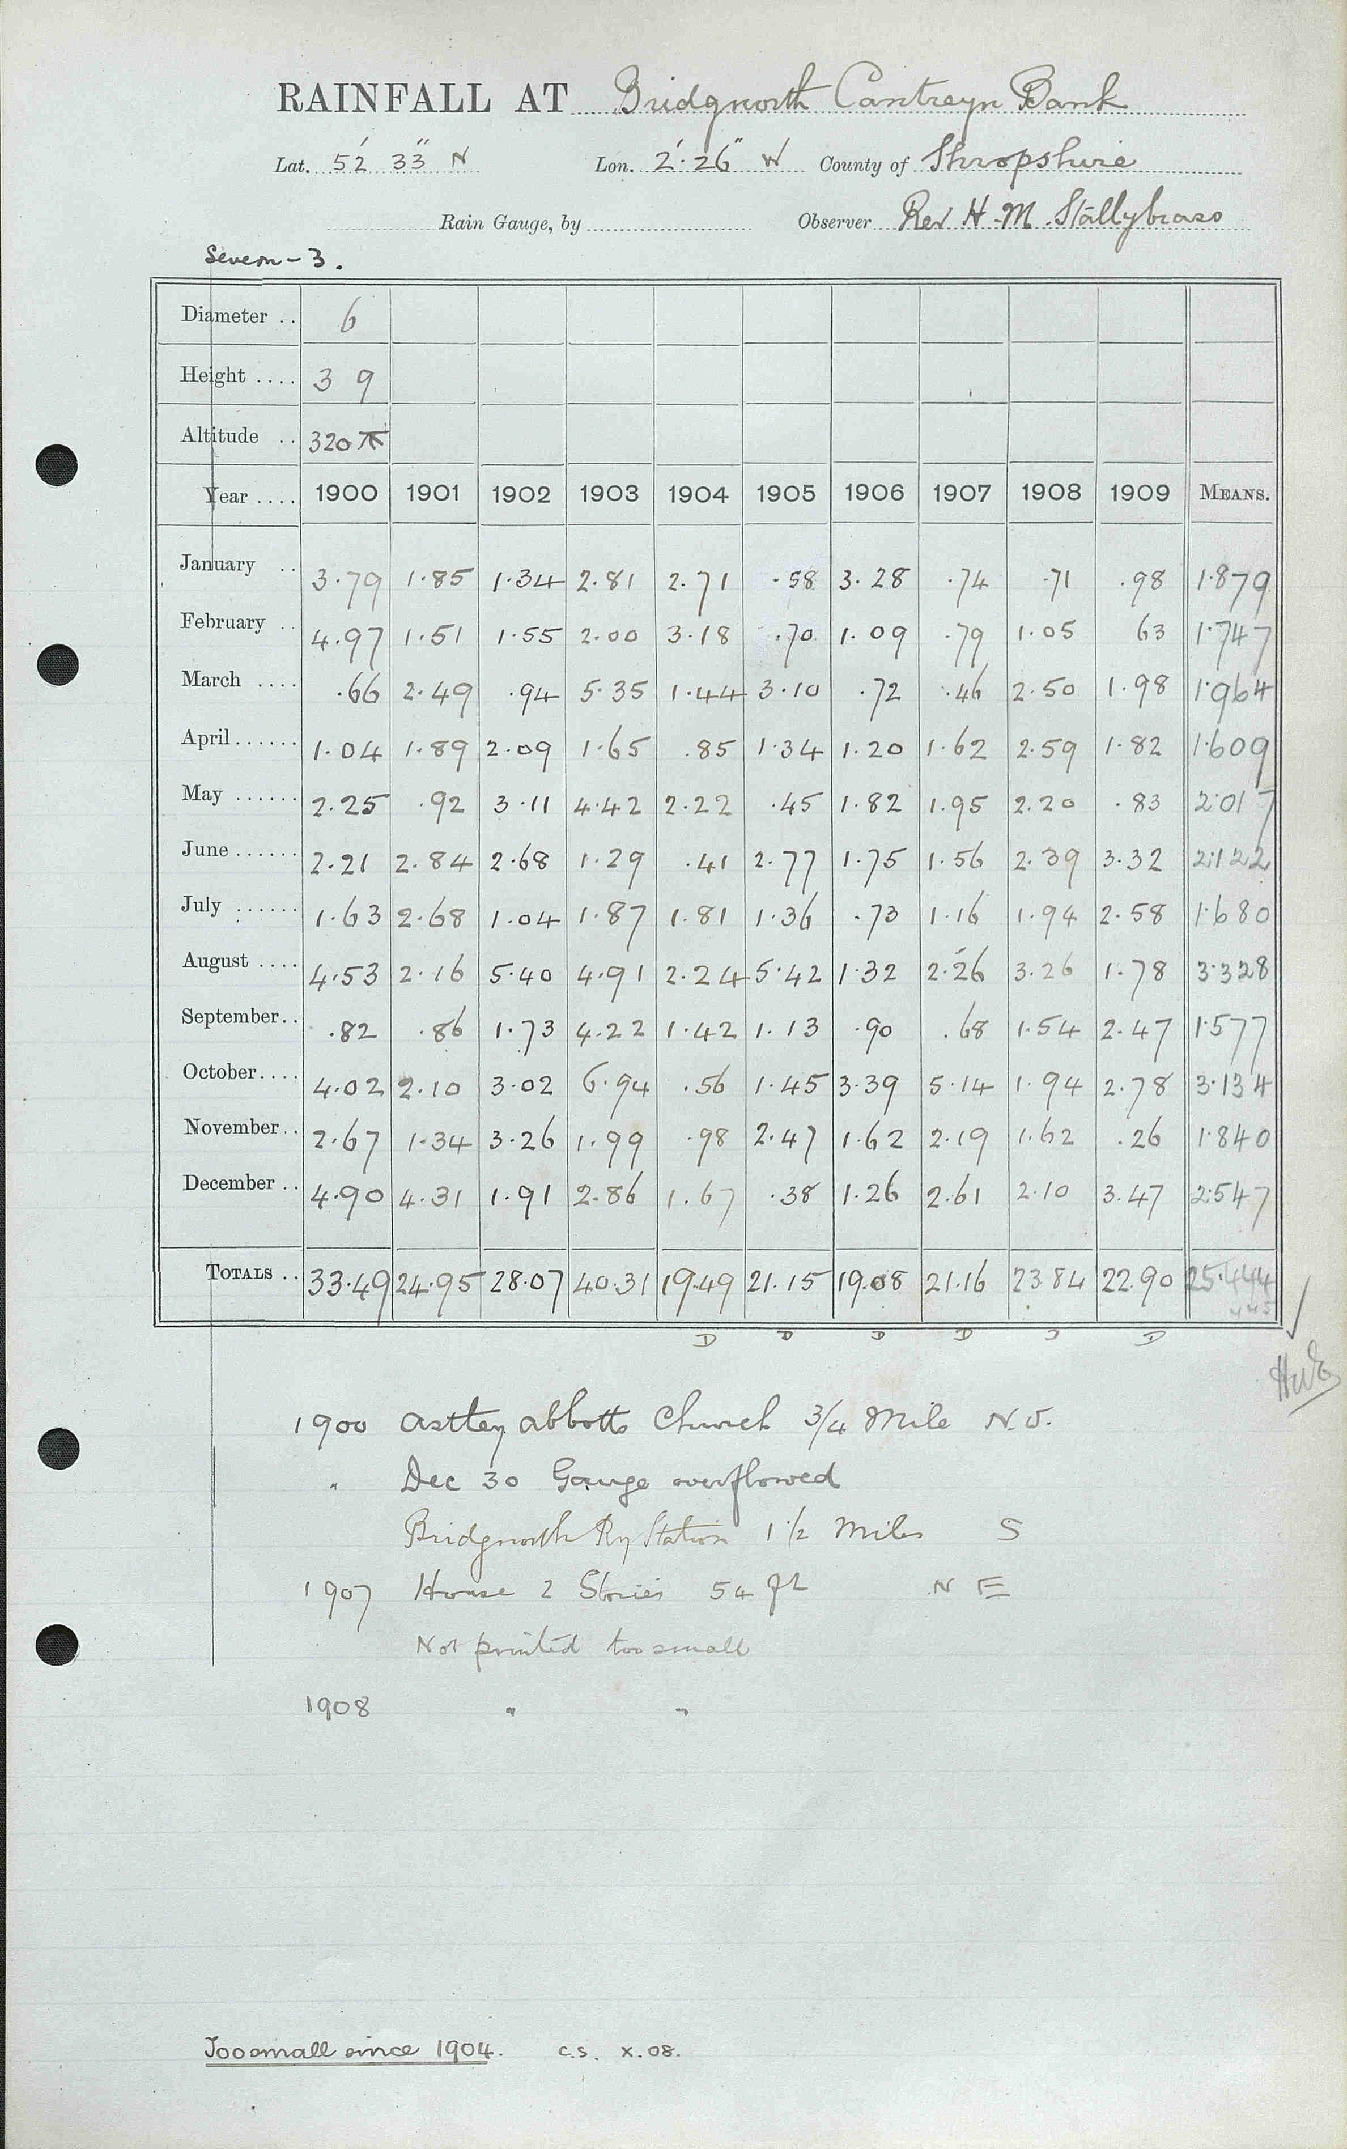 RAINFALL AT Bridgnorth Cantreyn Bank
Lat. 52' 33" N Lon. 2'. 26" W County of Shropshire
Rain Gauge, by Observer Rev H. M. Stallybrass
Severn - 3.
Diameter .. 6
Height .... 3 9
Altitude .. 320
Year .... 1900 1901 1902 1903 1904 1905 1906 1907 1908 1909 MEANS.
January .. 3.79 1.85 1.34 2.81 2.71 .58 3.28 .74 .71 .98 1.879
February .. 4.97 1.51 1.55 2.00 3.18 .70 1.09 .79 1.05 63 1.747
March .... .66 2.49 .94 5.35 1.44 3.10 .72 .46 2.50 1.98 1.964
April ...... 1.04 1.89 2.09 1.65 .85 1.34 1.20 1.62 2.59 1.82 1.609
May ...... 2.25 .92 3.11 4.42 2.22 .45 1.82 1.95 2.20 .83 2.017
June ...... 2.21 2.84 2.68 1.29 .41 2.77 1.75 1.56 2.39 3.32 2.122
July ...... 1.63 2.68 1.04 1.87 1.81 1.36 .73 1.16 1.94 2.58 1.680
August .... 4.53 2.16 5.40 4.91 2.24 5.42 1.32 2.26 3.26 1.78 3.328
September .. .82 .86 1.73 4.22 1.42 1.13 .90 .68 1.54 2.47 1.577
October .... 4.02 2.10 3.02 6.94 .56 1.45 3.39 5.14 1.94 2.78 3.134
November .. 2.67 1.34 3.26 1.99 .98 2.47 1.62 2.19 1.62 .26 1.840
December .. 4.90 4.31 1.91 2.86 1.67 .38 1.26 2.61 2.10 3.47 2.547
TOTALS .. 33.49 24.95 28.07 40.31 19.49 21.15 19.08 21.16 23.84 22.90 25.444
445
D D D D D D
1900 Astley Abbotts Church 3/4 Mile N.W.
" Dec 30 Gauge overflowed
Bridgnorth Ry Station 1 1/2 Miles S
1907 House 2 Stories 54 ft N E
Not printed too small
1908 " "
Too small since 1904. C.S. X.08.